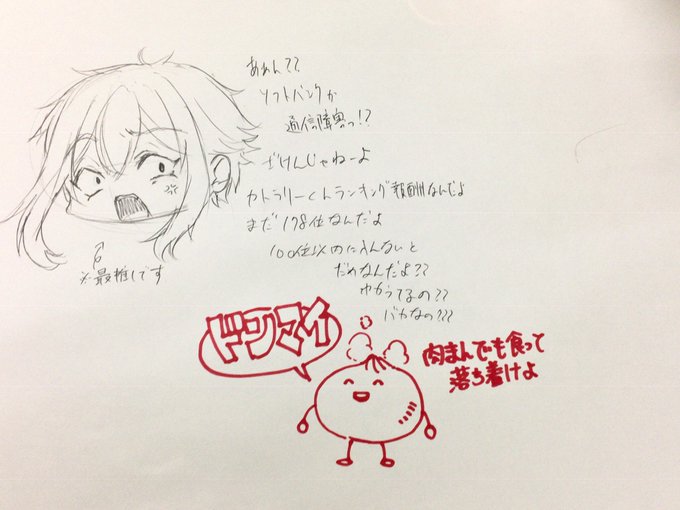 あぁん??
ソフトバンクが
通信障害っ!?
ざけんじゃねーよ
カトラリーくんランキング報酬なんだよ
まだ178位なんだよ
100位以内に入んないと
だめなんだよ??
わかってるの??
バカなの???
※最推しです
ドンマイ
肉まんでも食って
落ち着けよ